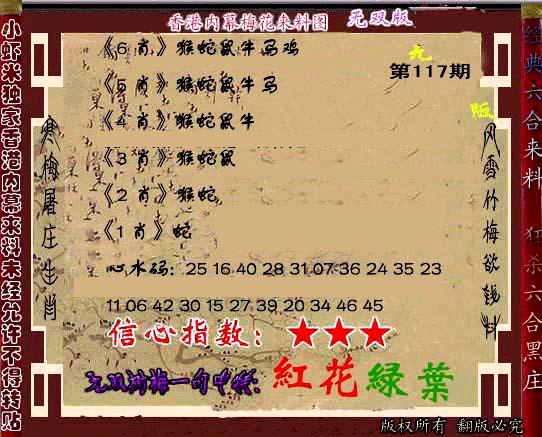 香港内幕梅花来料图 无双版
小虾米独家香港内幕来料未经允许不得转贴
经典六合来料 狂杀六合黑庄
无
版
第117期
寒梅屠庄生肖
风雪竹梅欲钱料
《6 肖》猴蛇鼠牛马鸡
《5 肖》猴蛇鼠牛马
《4 肖》猴蛇鼠牛
《3 肖》猴蛇鼠
《2 肖》猴蛇
《1 肖》蛇
心水码: 25 16 40 28 31 07 36 24 35 23
11 06 42 30 15 27 39 20 34 46 45
信心指数: ★★★
无双剑梅一句中特: 紅花緑葉
版权所有 翻版必究